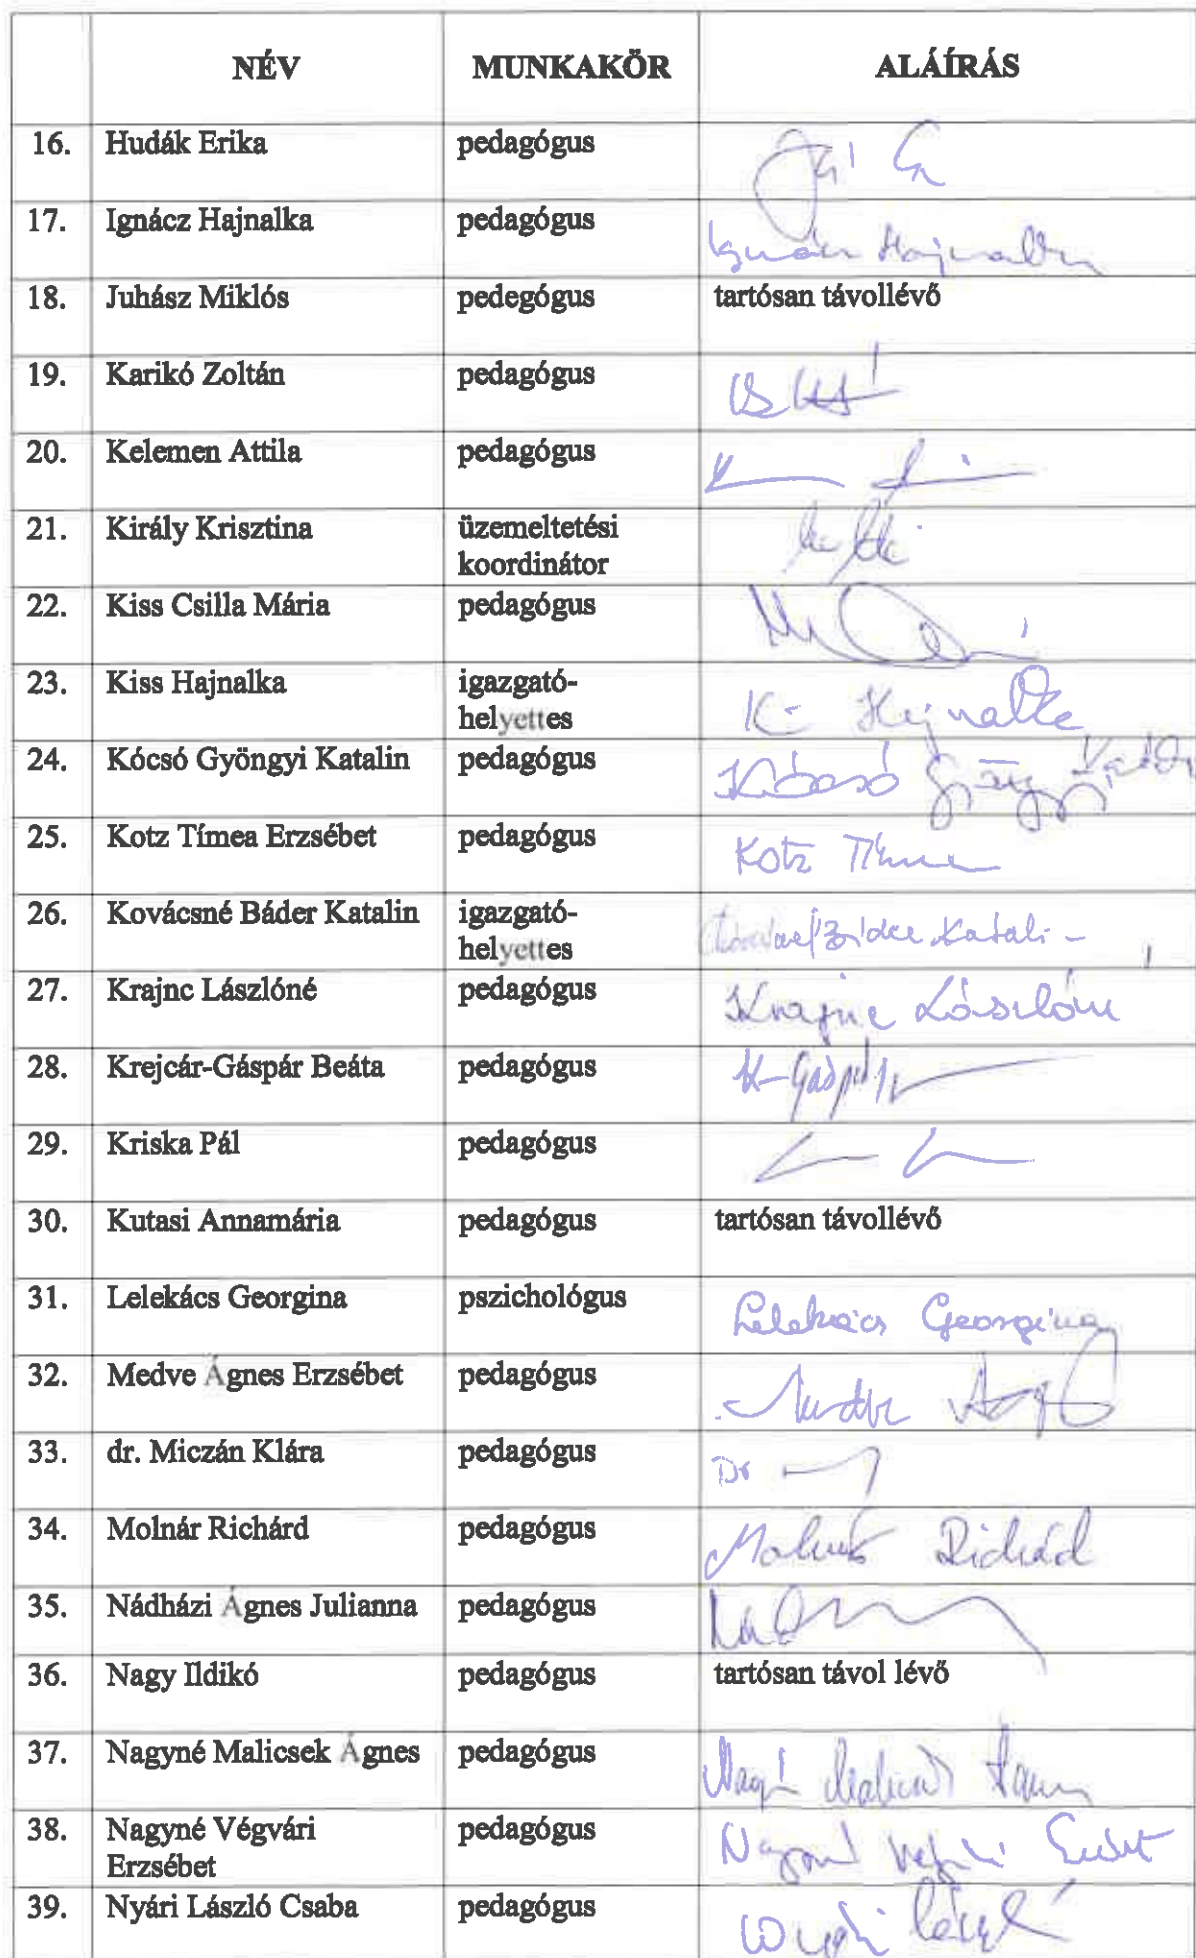 NÉV MUNKAKÖR ALÁÍRÁS
16. Hudák Erika pedagógus
17. Ignácz Hajnalka pedagógus Ignácz Hajnalka
18. Juhász Miklós pedegógus tartósan távollévő
19. Karikó Zoltán pedagógus
20. Kelemen Attila pedagógus
21. Király Krisztina üzemeltetési
koordinátor
22. Kiss Csilla Mária pedagógus
23. Kiss Hajnalka igazgató- Hajnalka
helyettes
24. Kócsó Gyöngyi Katalin pedagógus Kócsó Gyöngyi Katalin
25. Kotz Tímea Erzsébet pedagógus Kotz Tímea
26. Kovácsné Báder Katalin igazgató- Kovácsné Báder Katalin
helyettes
27. Krajnc Lászlóné pedagógus Krajnc Lászlóné
28. Krejcár-Gáspár Beáta pedagógus
29. Kriska Pál pedagógus
30. Kutasi Annamária pedagógus tartósan távollévő
31. Lelekács Georgina pszichológus Lelekács Georgina
32. Medve Ágnes Erzsébet pedagógus Medve
33. dr. Miczán Klára pedagógus Dr
34. Molnár Richárd pedagógus Molnár Richárd
35. Nádházi Ágnes Julianna pedagógus
36. Nagy Ildikó pedagógus tartósan távol lévő
37. Nagyné Malicsek Ágnes pedagógus
38. Nagyné Végvári pedagógus
Erzsébet
39. Nyári László Csaba pedagógus